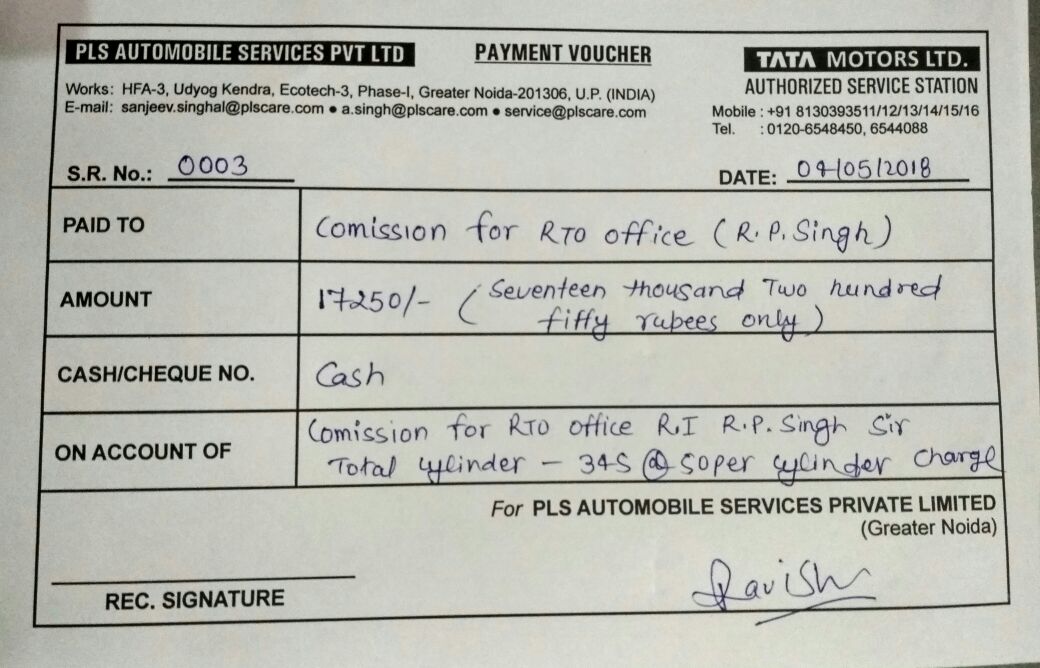 PLS AUTOMOBILE SERVICES PVT LTD
PAYMENT VOUCHER
TATA MOTORS LTD.
AUTHORIZED SERVICE STATION
Works: HFA-3, Udyog Kendra, Ecotech-3, Phase-I, Greater Noida-201306, U.P. (INDIA)
E-mail: sanjeev.singhal@plscare.com ● a.singh@plscare.com ● service@plscare.com
Mobile : +91 8130393511/12/13/14/15/16
Tel. : 0120-6548450, 6544088
S.R. No.: 0003
DATE: 04/05/2018
PAID TO
Comission for RTO office (R.P. Singh)
AMOUNT
17250/- (Seventeen thousand Two hundred
fiffy rupees only)
CASH/CHEQUE NO.
Cash
ON ACCOUNT OF
Comission for RTO office R.I R.P. Singh Sir
Total cylinder - 345 @ 50per cylinder charge
For PLS AUTOMOBILE SERVICES PRIVATE LIMITED
(Greater Noida)
Ravish
REC. SIGNATURE